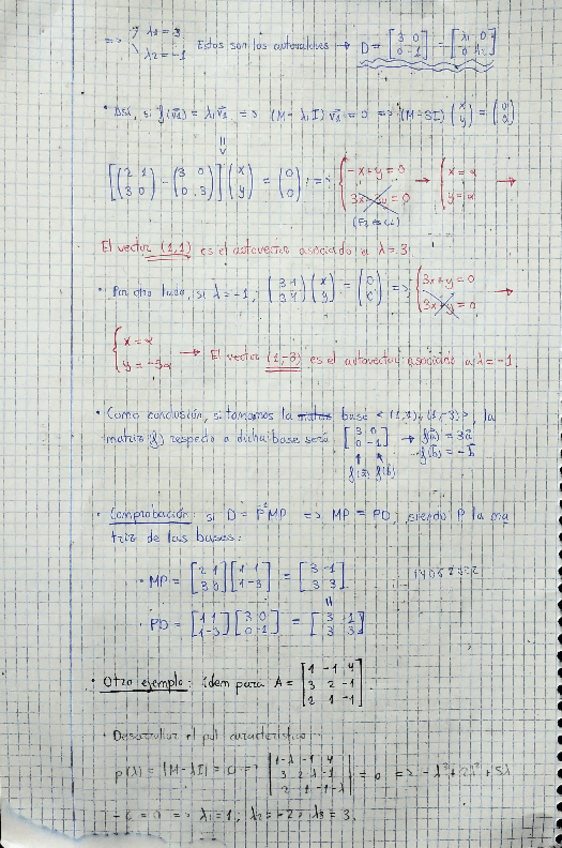 => λ1 = 3
λ2 = -1 Estos son los autovalores → D = [3 0; 0 -1] = [λ1 0; 0 λ2]
• Así, si f(v1) = λ1v1 => (M - λ1I) v1 = 0 => (M-3I) (x y) = (0 0)
[(2 1; 3 0) - (3 0; 0 3)] (x y) = (0 0) ; => { -x+y=0 → { x = α →
3x-3y=0 y = α
El vector (1,1) es el autovector asociado a λ = 3
• Por otro lado, si λ = -1, (3 1; 3 1) (x y) = (0 0) => { 3x+y=0 →
3x+y=0
{ x = α
y = -3α → El vector (1,-3) es el autovector asociado a λ = -1.
• Como conclusión, si tomamos la base < (1,1), (1,-3) >, la
matriz (f) respecto a dicha base será [3 0; 0 -1] → f(a) = 3a
f(b) = -b
f(a) f(b)
• Comprobación: si D = P⁻¹MP => MP = PD, siendo P la ma
triz de las bases:
• MP = [2 1; 3 0] [1 1; 1 -3] = [3 -1; 3 3]
=
• PD = [1 1; 1 -3] [3 0; 0 -1] = [3 -1; 3 3]
• Otro ejemplo: idem para A = [1 -1 4; 3 2 -1; 2 1 -1]
• Desarrollar el pol. característico:
p(λ) = |M-λI| = 0 => |1-λ -1 4; 3 2-λ -1; 2 1 -1-λ| = 0 => -λ³+2λ²+5λ
-6 = 0 => λ1 = 1; λ2 = -2; λ3 = 3.